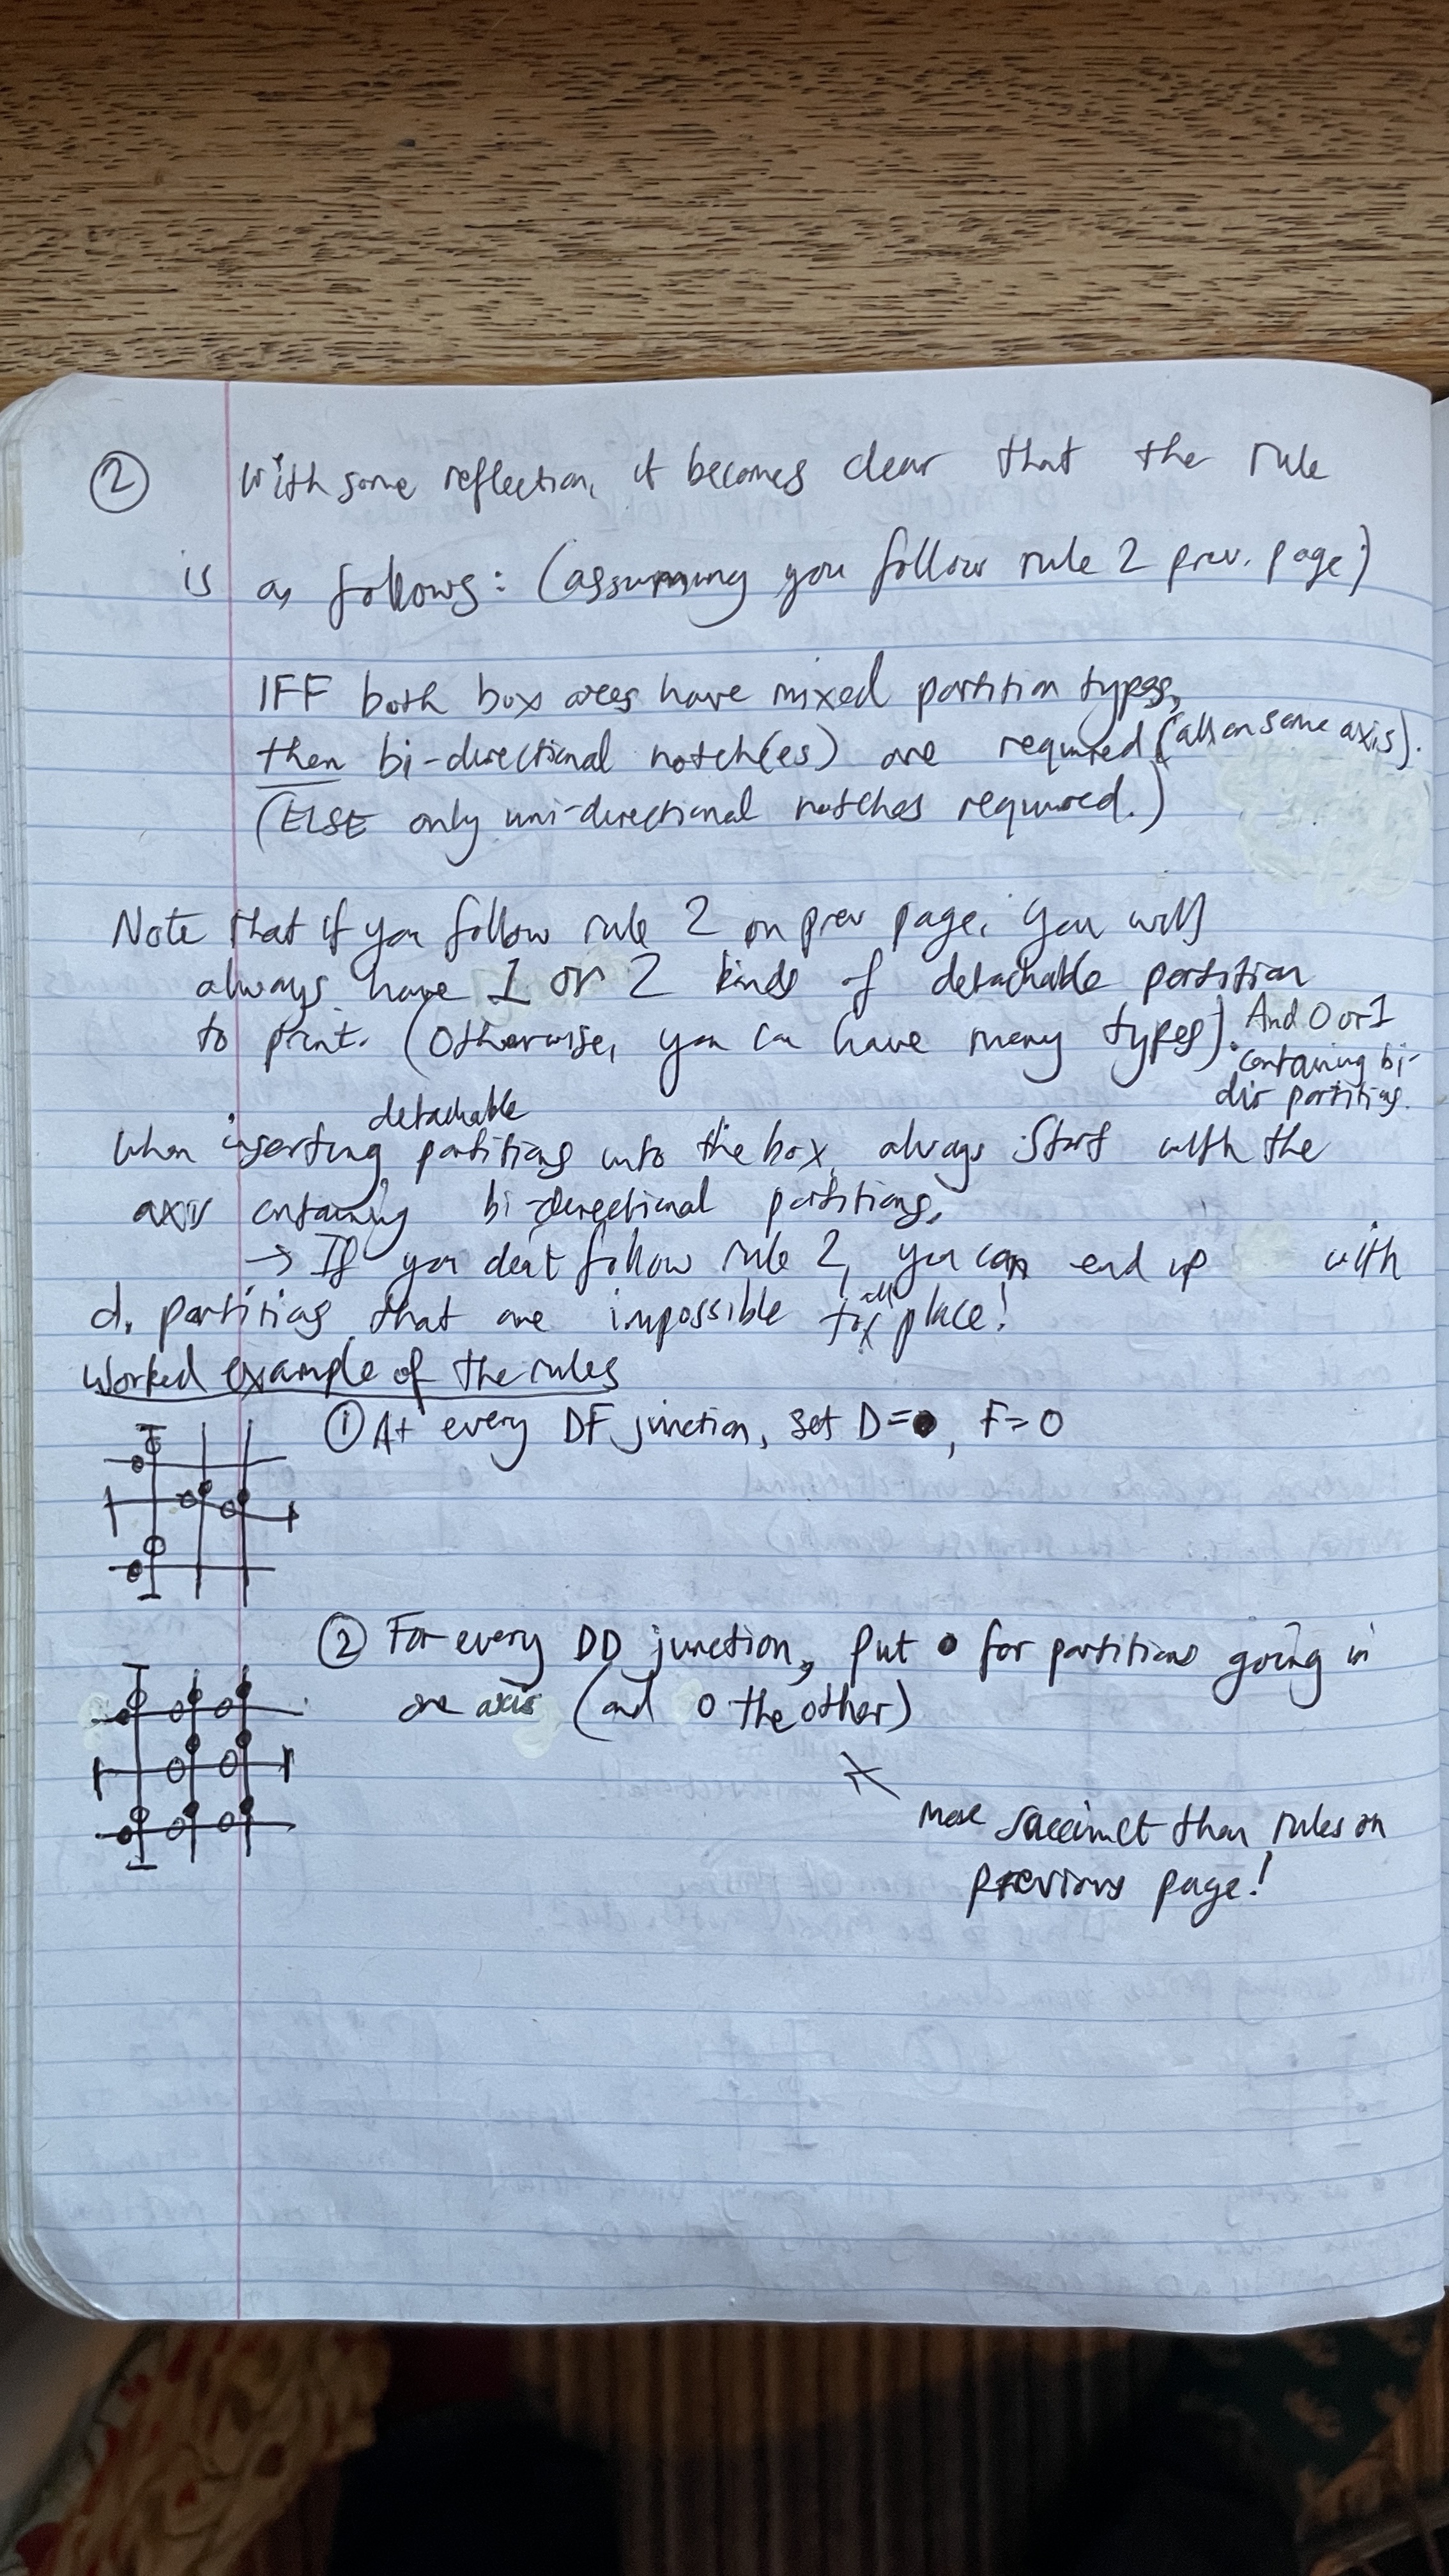 ② With some reflection, it becomes clear that the rule
is as follows: (assuming you follow rule 2 prev. page)
IFF both box axes have mixed partition types,
then bi-directional notch(es) are required (all on same axis).
(ELSE only uni-directional notches required.)
Note that if you follow rule 2 on prev page, you will
always have 1 or 2 kinds of detachable partition
to print. (Otherwise, you can have many types). And 0 or 1
containing bi-
dir partitions.
detachable
When inserting partitions into the box, always start with the
axis containing bi-directional partitions.
→ If you don't follow rule 2, you can end up with
d. partitions that are impossible to all place!
Worked example of the rules
① At every DF junction, set D=●, F=O
② For every DD junction, put ● for partitions going in
one axis (and O the other)
More succinct than rules on
previous page!